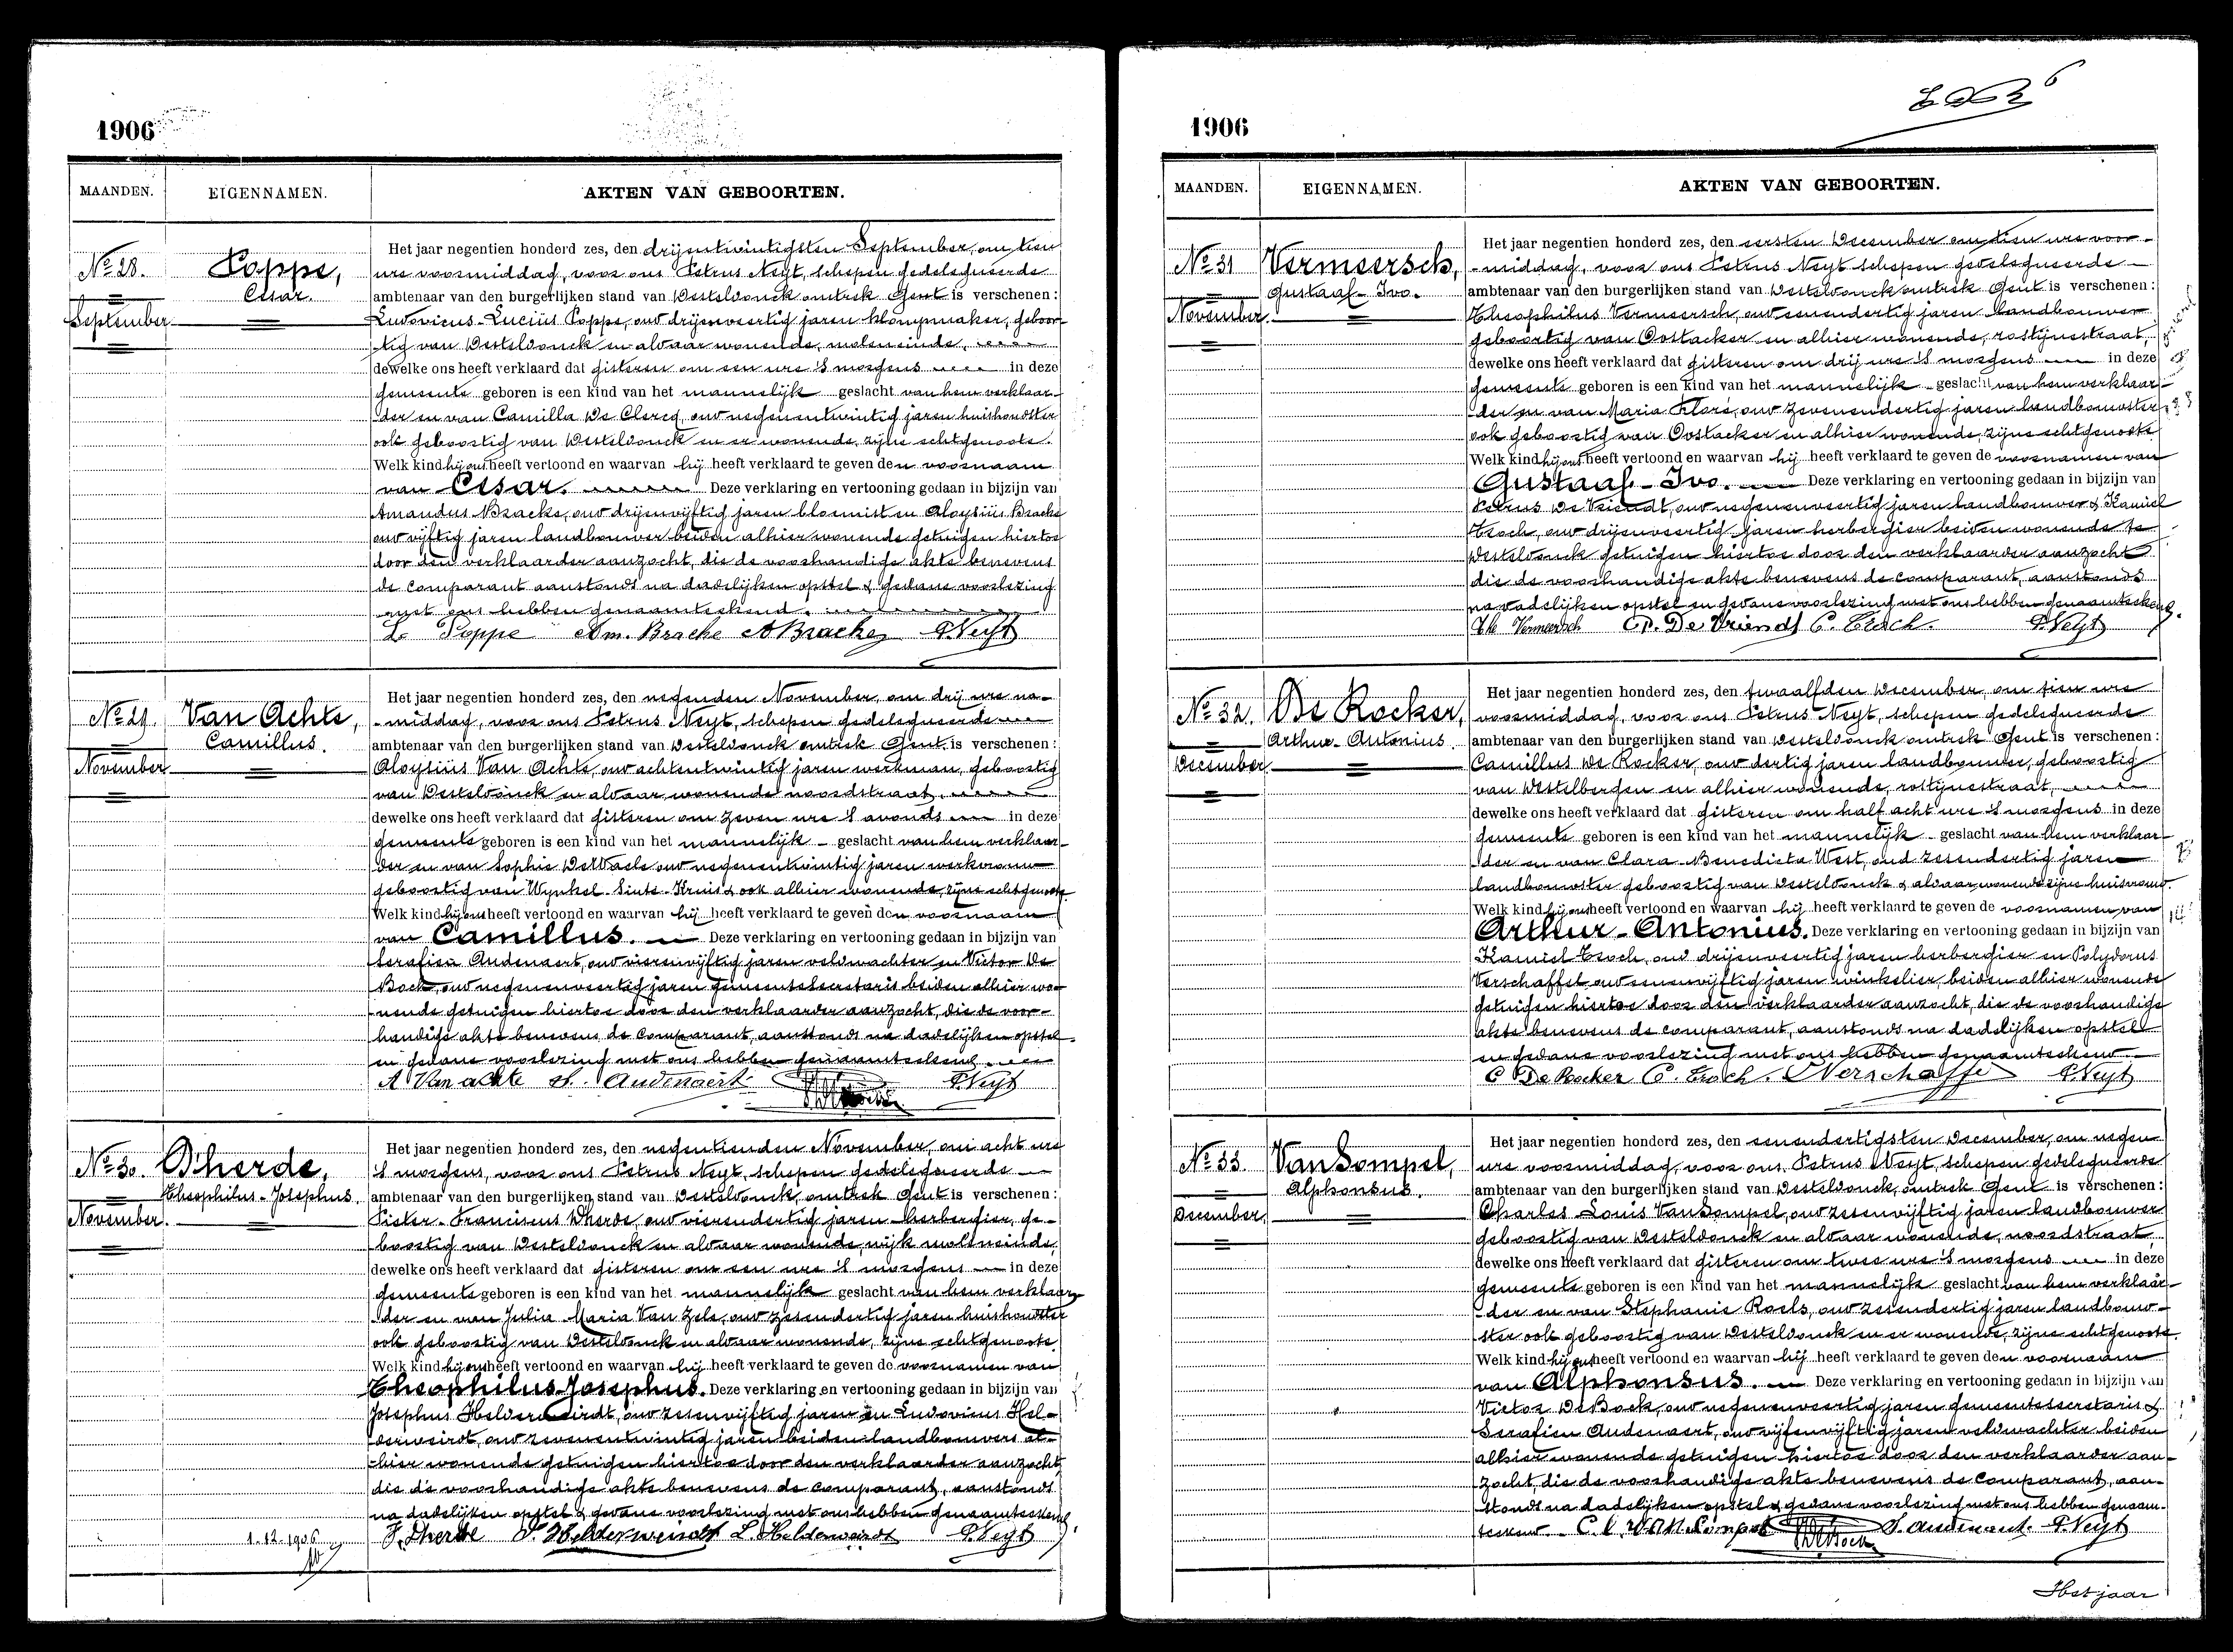 1906
MAANDEN. EIGENNAMEN. AKTEN VAN GEBOORTEN.
No 28.
September
Poppe,
Cesar.
Het jaar negentien honderd zes, den drijentwintigsten September, om tien
ure voormiddag, voor ons Petrus Neyt, schepen gedelegueerde
ambtenaar van den burgerlijken stand van Desteldonck omtrek Gent is verschenen:
Ludovicus-Lucius Poppe, oud drijenveertig jaren klompmaker, geboor-
tig van Desteldonck en aldaar wonende, moleneinde,
dewelke ons heeft verklaard dat gisteren om een ure 's morgens in deze
gemeente geboren is een kind van het mannelijk geslacht van hem verklaar-
der en van Camilla De Clercq, oud negenentwintig jaren huishoudster
ook geboortig van Desteldonck en er wonende, zijne echtgenoote.
Welk kind hij ons heeft vertoond en waarvan hij heeft verklaard te geven den voornaam
van Cesar. Deze verklaring en vertooning gedaan in bijzijn van
Amandus Bracke, oud drijenvijftig jaren bloemist en Aloysiüs Bracke
oud vijftig jaren landbouwer beiden alhier wonende getuigen hiertoe
door den verklaarder aanzocht, die de voorhandige akte benevens
de comparant aanstonds na dadelijken opstel & gedane voorlezing
met ons hebben genaamteekend.
L Poppe Am. Bracke A Bracke P. Neyt
No 29.
November
Van Achte,
Camillus.
Het jaar negentien honderd zes, den negenden November, om drij ure na-
-middag, voor ons Petrus Neyt, schepen gedelegueerde
ambtenaar van den burgerlijken stand van Desteldonck omtrek Gent is verschenen:
Aloysiüs Van Achte, oud achtentwintig jaren werkman, geboortig
van Desteldonck en aldaar wonende noordstraat,
dewelke ons heeft verklaard dat gisteren om zeven ure 's avonds in deze
gemeente geboren is een kind van het mannelijk geslacht van hem verklaar-
der en van Sophie De Waele oud negenentwintig jaren werkvrouw
geboortig van Wynkel Sinte-Kruis & ook alhier wonende, zijne echtgenoote.
Welk kind hij ons heeft vertoond en waarvan hij heeft verklaard te geven den voornaam
van Camillus. Deze verklaring en vertooning gedaan in bijzijn van
Serafien Audenaert, oud vierenvijftig jaren veldwachter en Victor De
Bock, oud negenenveertig jaren gemeentesecretaris beiden alhier wo-
nende getuigen hiertoe door den verklaarder aanzocht, die de voor-
handige akte benevens de comparant, aanstonds na dadelijken opstel
en gedane voorlezing met ons hebben genaamteekend.
A Van achte S. Audenaert P. Neyt
No 30.
November.
D'herde,
Theophilus-Josephus.
Het jaar negentien honderd zes, den negentienden November, om acht ure
's morgens, voor ons Petrus Neyt, schepen gedelegueerde
ambtenaar van den burgerlijken stand van Desteldonck, omtrek Gent is verschenen:
Pieter-Franciscus Dherde, oud vierendertig jaren herbergier, ge-
boortig van Desteldonck en aldaar wonende, wijk moleneinde,
dewelke ons heeft verklaard dat gisteren om een ure 's morgens in deze
gemeente geboren is een kind van het mannelijk geslacht van hem verklaar-
der en van Julia Maria Van Zele, oud zesendertig jaren huishoudster
ook geboortig van Desteldonck en aldaar wonende, zijne echtgenoote.
Welk kind hij ons heeft vertoond en waarvan hij heeft verklaard te geven de voornamen van
Theophilus-Josephus. Deze verklaring en vertooning gedaan in bijzijn van
Josephus Helderweirdt, oud zesenvijftig jaren en Ludovicus Hel-
derweirdt, oud zevenentwintig jaren beiden landbouwers al-
hier wonende getuigen hiertoe door den verklaarder aanzocht,
die de voorhandige akte benevens de comparant, aanstonds
na dadelijken opstel & gedane voorlezing met ons hebben genaamteekend.
F. Dherde J. Helderweirdt L. Helderweirdt P. Neyt
1.12.1906
1906
MAANDEN. EIGENNAMEN. AKTEN VAN GEBOORTEN.
No 31
November.
Vermeersch,
Gustaaf-Ivo.
Het jaar negentien honderd zes, den eersten December om tien ure voor-
-middag, voor ons Petrus Neyt schepen gedelegueerde
ambtenaar van den burgerlijken stand van Desteldonck omtrek Gent is verschenen:
Theophilus Vermeersch, oud eenendertig jaren landbouwer
geboortig van Oostacker en alhier wonende, rostijnestraat,
dewelke ons heeft verklaard dat gisteren om drij ure 's morgens in deze
gemeente geboren is een kind van het mannelijk geslacht van hem verklaar-
der en van Maria Floré, oud zevenendertig jaren landbouwster
ook geboortig van Oostacker en alhier wonende, zijne echtgenoote.
Welk kind hij ons heeft vertoond en waarvan hij heeft verklaard te geven de voornamen van
Gustaaf-Ivo. Deze verklaring en vertooning gedaan in bijzijn van
Petrus De Vriendt, oud negenenveertig jaren landbouwer & Kamiel
Troch, oud drijenveertig jaren herbergier beiden wonende te
Desteldonck getuigen hiertoe door den verklaarder aanzocht
die de voorhandige akte benevens de comparant, aanstonds
na dadelijken opstel en gedane voorlezing met ons hebben genaamteekend.
Th Vermeersch P. De Vriendt C. Troch. P. Neyt
No 32.
December.
De Rocker,
Arthur-Antonius.
Het jaar negentien honderd zes, den twaalfden December, om tien ure
voormiddag, voor ons Petrus Neyt, schepen gedelegueerde
ambtenaar van den burgerlijken stand van Desteldonck omtrek Gent is verschenen:
Camillus De Rocker, oud dertig jaren landbouwer, geboortig
van Destelbergen en alhier wonende, rostijnestraat,
dewelke ons heeft verklaard dat gisteren om half acht ure 's morgens in deze
gemeente geboren is een kind van het mannelijk geslacht van hem verklaar-
der en van Clara Benedicta West, oud zesendertig jaren
landbouwster geboortig van Desteldonck & aldaar wonende zijne huisvrouw.
Welk kind hij ons heeft vertoond en waarvan hij heeft verklaard te geven de voornamen van
Arthur-Antonius. Deze verklaring en vertooning gedaan in bijzijn van
Kamiel Troch, oud drijenveertig jaren herbergier en Polydorus
Verschaffel oud eenenvijftig jaren winkelier, beiden alhier wonende
getuigen hiertoe door den verklaarder aanzocht, die de voorhandige
akte benevens de comparant, aanstonds na dadelijken opstel
en gedane voorlezing met ons hebben genaamteekend
C De Rocker C. Troch. P. Neyt
No 33.
December.
Van Sompel,
Alphonsus.
Het jaar negentien honderd zes, den eenendertigsten December, om negen
ure voormiddag, voor ons Petrus Neyt, schepen gedelegueerde
ambtenaar van den burgerlijken stand van Desteldonck, omtrek Gent is verschenen:
Charles Louis Van Sompel, oud zesenvijftig jaren landbouwer
geboortig van Desteldonck en aldaar wonende, noordstraat,
dewelke ons heeft verklaard dat gisteren om twee ure 's morgens in deze
gemeente geboren is een kind van het mannelijk geslacht van hem verklaar-
der en van Stephanie Roels, oud zesendertig jaren landbouw-
ster ook geboortig van Desteldonck en er wonende, zijne echtgenoote.
Welk kind hij ons heeft vertoond en waarvan hij heeft verklaard te geven den voornaam
van Alphonsus. Deze verklaring en vertooning gedaan in bijzijn van
Victor De Bock, oud negenenveertig jaren gemeentesecretaris &
Serafien Audenaert, oud vijfenvijftig jaren veldwachter beiden
alhier wonende getuigen hiertoe door den verklaarder aan-
zocht, die de voorhandige akte benevens de comparant, aan-
stonds na dadelijken opstel & gedane voorlezing met ons hebben genaam-
teekend C. L. VAN Sompel S. Audenaert. P. Neyt
Het jaar